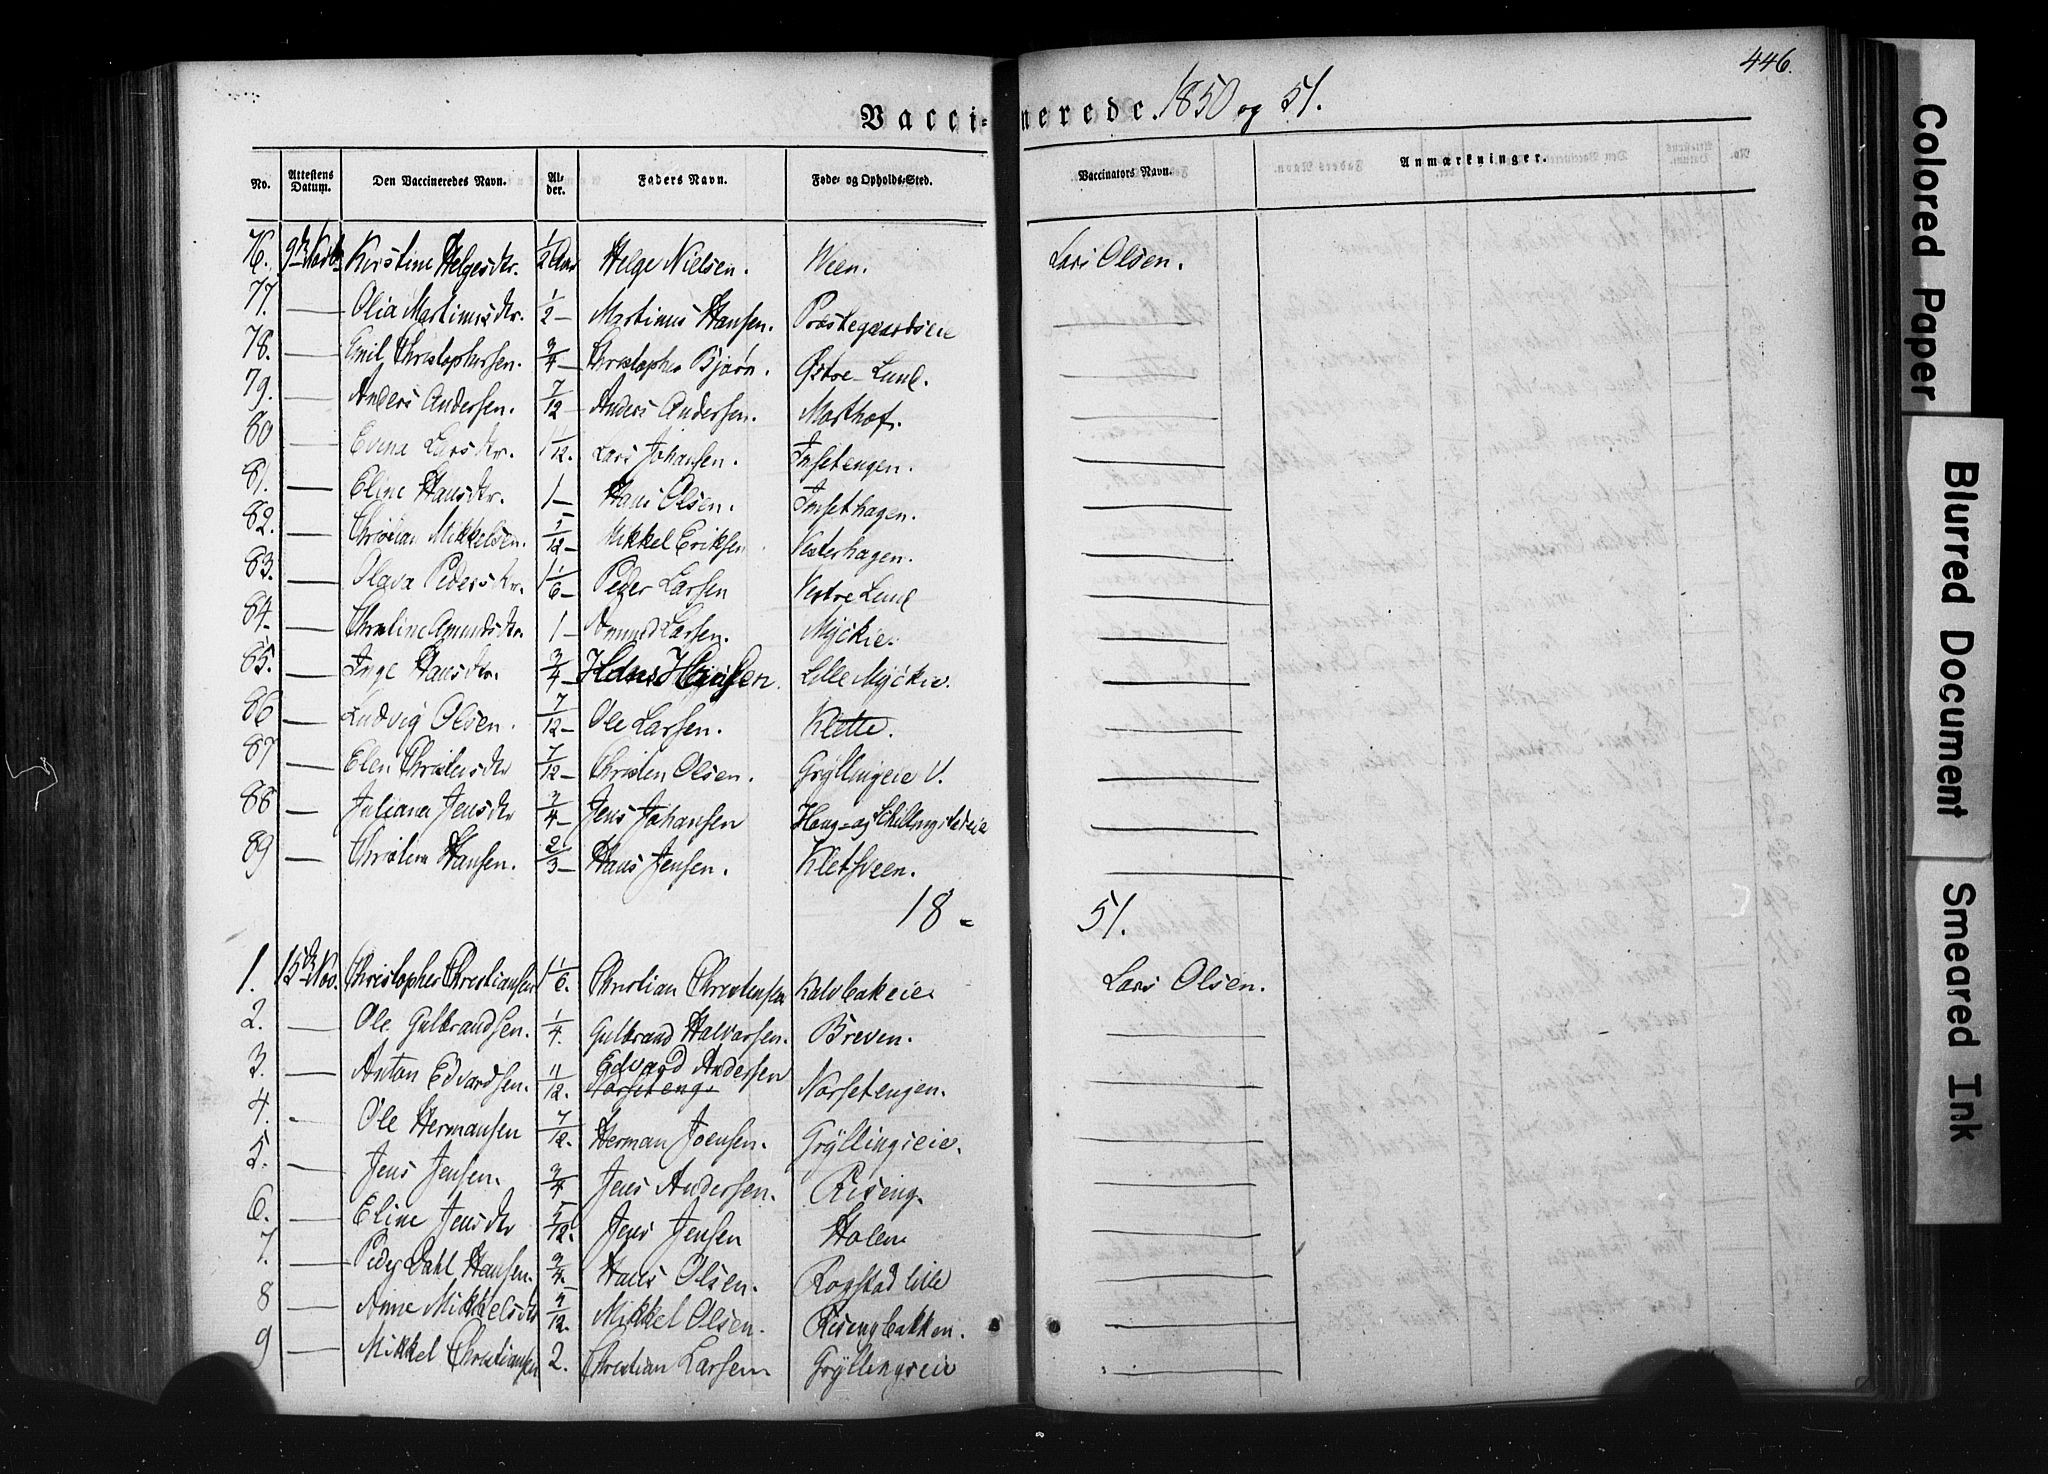 446.
Vaccinerede. 1850 og 51.
No. Attestens Datum. Den Vaccineredes Navn. Alder. Faders Navn. Føde- og Opholds-Sted. Vaccinators Navn. Anmærkninger.
76. 9de Kirstine Helgesdtr. 1/2 Aar Helge Nielsen. Lars Olsen.
77. — Olia Martinusdtr. 1/2 — Martinus Hansen. Præstegaardseie —
78. — Emil Christophersen. 3/4 — Christopher Bjørn. Østre Lund. —
79. — Anders Andersen. 7/12 — Anders Andersen. —
80 — Evine Larsdtr. 1 1/12. Lars Johansen. Insetengen. —
81. — Eline Hansdtr. 1 — Hans Olsen. Insethagen. —
82. — Christian Mikkelsen. 5/12 — Mikkel Eriksen. Vesterhagen. —
83. — Olava Pedersdtr. 1 1/6 — Peder Larsen Vestre Lund —
84. — Amundsdtr. 1 — Amund Larsen. Myckie. —
85. — Inge Hansdtr. 3/4 — Hans Hansen. Lille Myckie. —
86 — Ludvig Olsen. 7/12 — Ole Larsen. Klette. —
87 — Elen Christensdtr 7/12 — Christen Olsen. Gryllingeie V. —
88 — Juliane Jensdtr 3/4 — Jens Johansen Haug- og —
89 — Hansen. 2/3 — Hans Jensen. Kletsveen. —
18 - 51.
1. 15de Nov. Christopher Christiansen 1 1/6. Christian Christensen Kalvbakeie. Lars Olsen.
2. — Ole Gulbrandsen. 1/4. Gulbrand Halvorsen. Breven. —
3. — Anton Edvardsen. 11/12. Edvard Andersen Norseteng. Norsetengen. —
4. - Ole Hermansen 7/12. Herman Joensen. Gryllingseie. —
5. — Jens Jensen. 3/4 Jens Andersen. Riseng. —
6. — Eline Jensdtr 5/12. Jens Jensen Holen —
7. — Dahl Hansen. 3/4. Hans Olsen. Rogstad lille —
8 — Anne Mikkelsdtr /12. Mikkel Olsen. Risengbakken. —
9 — Mikkel Christiansen 2. Christian Larsen Gryllingseie —
Colored Paper
Blurred Document
Smeared Ink